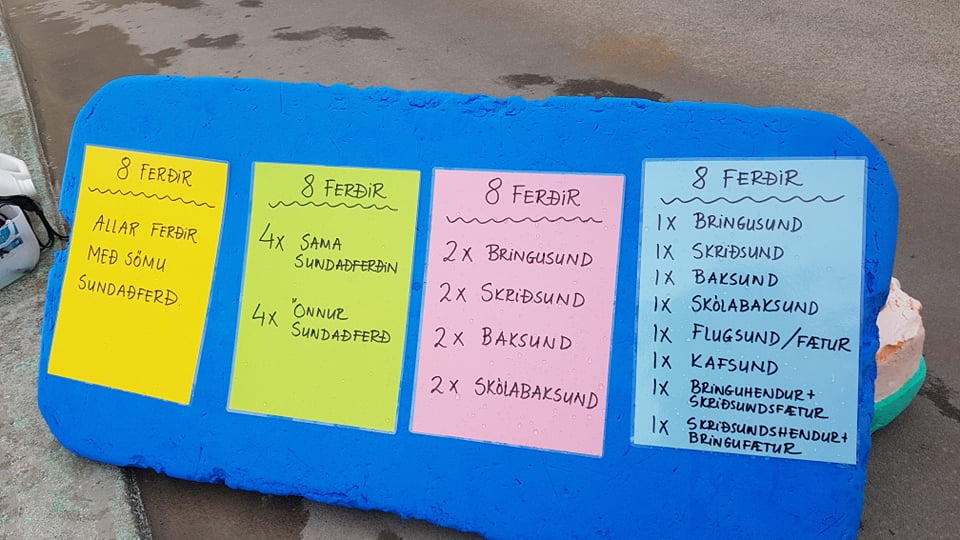 8 FERÐIR
ALLAR FERÐIR
MEÐ SÖMU
SUNDAÐFERÐ
8 FERÐIR
4X SAMA
SUNDAÐFERÐIN
4X ÖNNUR
SUNDAÐFERÐ
8 FERÐIR
2X BRINGUSUND
2X SKRIÐSUND
2X BAKSUND
2X SKÓLABAKSUND
8 FERÐIR
1X BRINGUSUND
1X SKRIÐSUND
1X BAKSUND
1X SKÓLABAKSUND
1X FLUGSUND/FÆTUR
1X KAFSUND
1X BRINGUHENDUR+
SKRIÐSUNDSFÆTUR
1X SKRIÐSUNDSHENDUR+
BRINGUFÆTUR